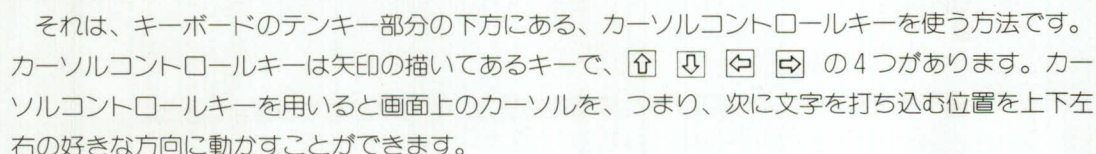 それは、キーボードのテンキー部分の下方にある、カーソルコントロールキーを使う方法です。
カーソルコントロールキーは矢印の描いてあるキーで、⇧ ⇩ ⇦ ⇨ の4つがあります。カー
ソルコントロールキーを用いると画面上のカーソルを、つまり、次に文字を打ち込む位置を上下左
右の好きな方向に動かすことができます。